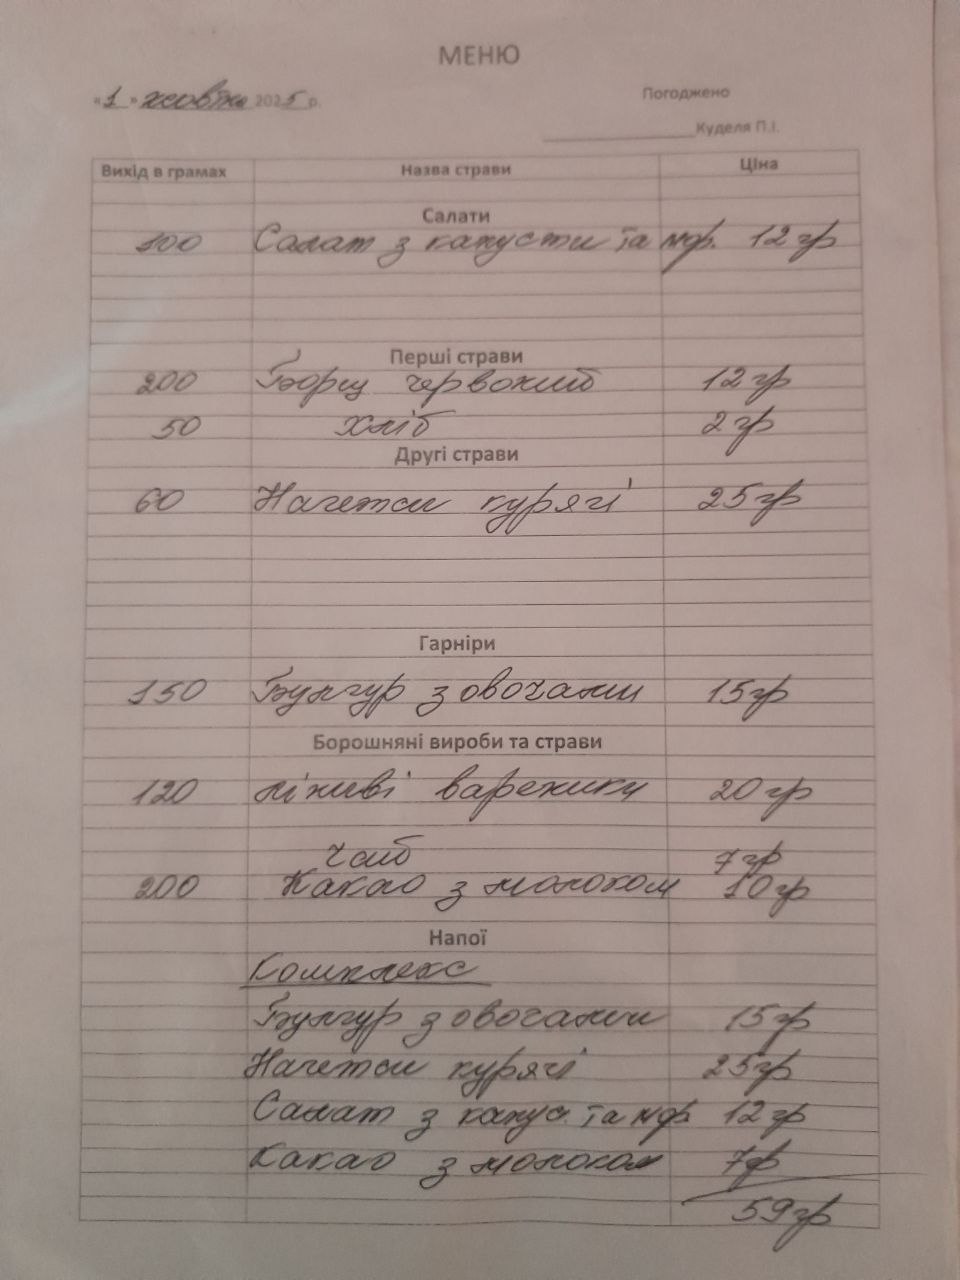 МЕНЮ
«1» жовтня 2025 р.
Погоджено
Куделя П.І.
Вихід в грамах Назва страви Ціна
Салати
100 Салат з капусти та мор. 12 гр
Перші страви
200 Борщ червоний 12 гр
50 хліб 2 гр
Другі страви
60 Нагетси курячі 25 гр
Гарніри
150 Булгур з овочами 15 гр
Борошняні вироби та страви
120 ліниві вареники 20 гр
чай 7 гр
200 Какао з молоком 10 гр
Напої
Комплекс
Булгур з овочами 15 гр
Нагетси курячі 25 гр
Салат з капус. та мор. 12 гр
Какао з молоком 7 гр
59 гр